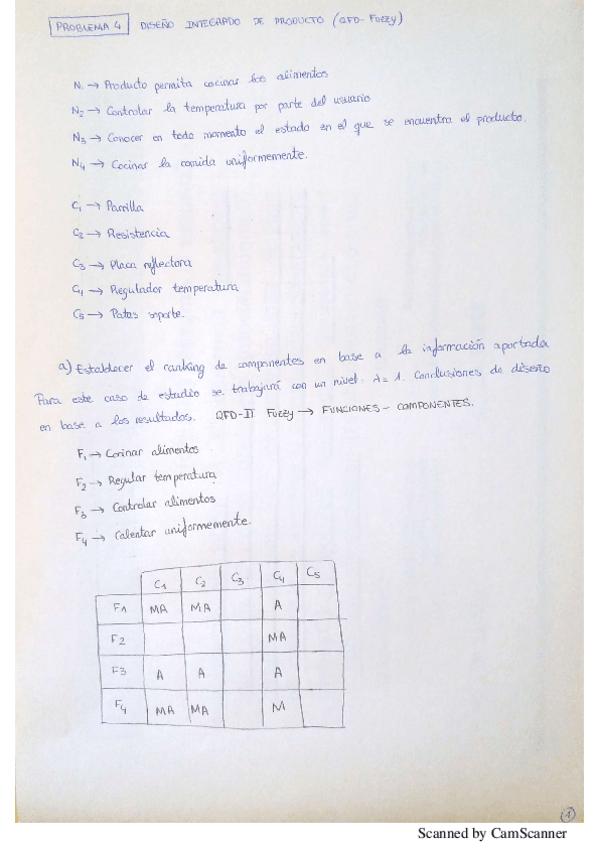 PROBLEMA 4 DISEÑO INTEGRADO DE PRODUCTO (QFD-Fuzzy)
N₁ → Producto permita cocinar los alimentos
N₂ → Controlar la temperatura por parte del usuario
N₃ → Conocer en todo momento el estado en el que se encuentra el producto.
N₄ → Cocinar la comida uniformemente.
C₁ → Parrilla
C₂ → Resistencia
C₃ → Placa reflectora
C₄ → Regulador temperatura
C₅ → Patas soporte.
a) Establecer el ranking de componentes en base a la información aportada
Para este caso de estudio se trabajará con un nivel λ=1. Conclusiones de diseño
en base a los resultados. QFD-II Fuzzy → FUNCIONES - COMPONENTES.
F₁ → Cocinar alimentos
F₂ → Regular temperatura
F₃ → Controlar alimentos
F₄ → Calentar uniformemente.
C₁ C₂ C₃ C₄ C₅
F1 MA MA A
F2 MA
F3 A A A
F₄ MA MA M
1
Scanned by CamScanner